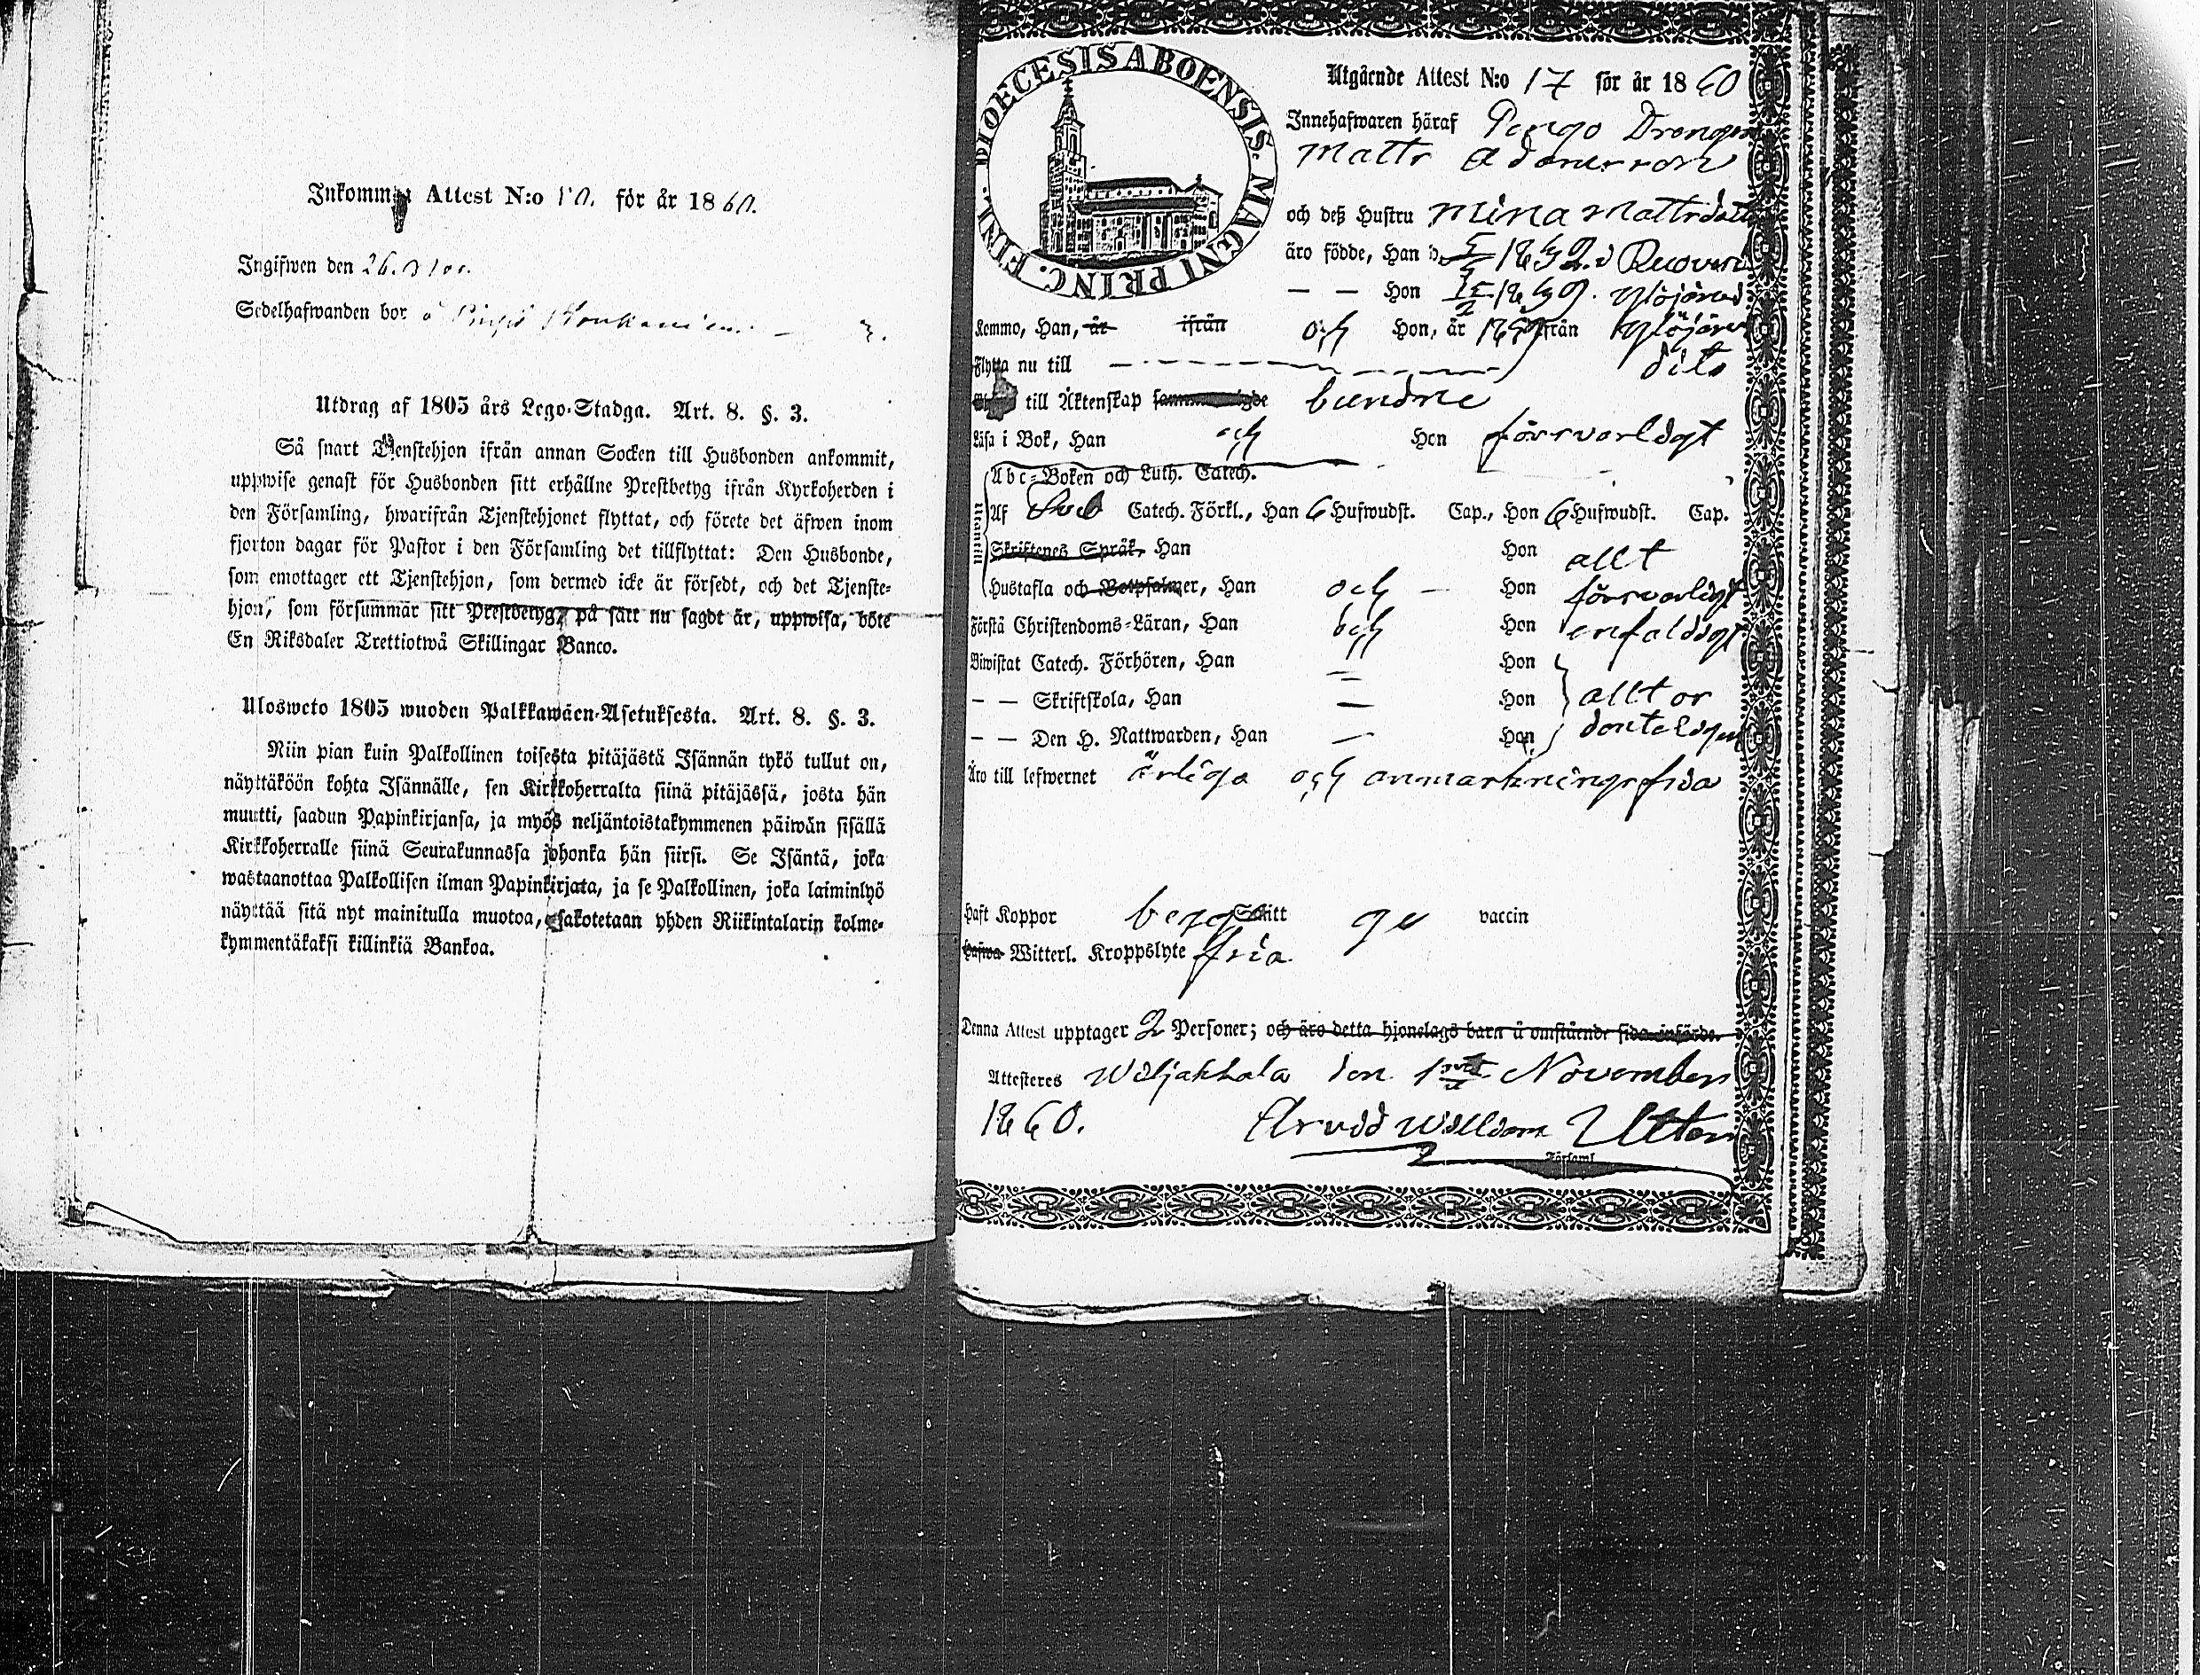 Inkommen Attest N:o 10. för år 1860.
Ingifwen den 26. Nov.
Sedelhafwanden bor å
Utdrag af 1805 års Lego-Stadga. Art. 8. §. 3.
Så snart Tjenstehjon ifrån annan Socken till Husbonden ankommit,
uppwise genast för Husbonden sitt erhållne Prestbetyg ifrån Kyrkoherden i
den Församling, hwarifrån Tjenstehjonet flyttat, och förete det äfwen inom
fjorton dagar för Pastor i den Församling det tillflyttat: Den Husbonde,
som emottager ett Tjenstehjon, som dermed icke är försedt, och det Tjenste-
hjon, som försummar sitt Prestbetyg, på sätt nu sagdt är, uppwisa, böte
En Riksdaler Trettiotwå Skillingar Banco.
Ulosweto 1805 wuoden Palkkawäen-Asetuksesta. Art. 8. §. 3.
Niin pian kuin Palkollinen toisesta pitäjästä Isännän tykö tullut on,
näyttäköön kohta Isännälle, sen Kirkkoherralta siinä pitäjässä, josta hän
muutti, saadun Papinkirjansa, ja myös neljäntoistakymmenen päiwän sisällä
Kirkkoherralle siinä Seurakunnassa johonka hän siirsi. Se Isäntä, joka
wastaanottaa Palkollisen ilman Papinkirjata, ja se Palkollinen, joka laiminlyö
näyttää sitä nyt mainitulla muotoa, sakotetaan yhden Riikintalarin kolme-
kymmentäkaksi killinkiä Bankoa.
DIOECESIS ABOENSIS. MAGNI PRINC. FINL.
Utgående Attest N:o 17 för år 1860
Innehafwaren häraf Pengo Drengen
Matts Adamsson
och deß Hustru Mina Mattsdotter
äro födde, Han d. 1832. i Ruovesi
— — Hon 1839. Ylöjärvi
Kommo, Han, år ifrån och Hon, år 1859 ifrån Ylöjärvi
Flytta nu till dito
till Äktenskap bundne
Läsa i Bok, Han och Hon försvarligt
Utantill
Abc-Boken och Luth. Catech.
Af Sveb Catech. Förkl., Han 6 Hufwudst. Cap., Hon 6 Hufwudst. Cap.
Skriftenes Språk, Han Hon allt
Hustafla och Botpsalmer, Han och — Hon försvarligt
Förstå Christendoms-Läran, Han och Hon enfaldigt
Biwistat Catech. Förhören, Han Hon
— — Skriftskola, Han Hon allt or
— — Den H. Nattwarden, Han Hon denteligen
Äro till lefwernet ärliga och anmärkningsfria
Haft Koppor begge Skitt ge vaccin
hafwa Witterl. Kroppslyte fria
Denna Attest upptager 2 Personer; och äro detta hjonelags barn å omstående sida införde.
Attesteres Wiljakkala den 1 November
1860. Arvid William Utter
Församl.